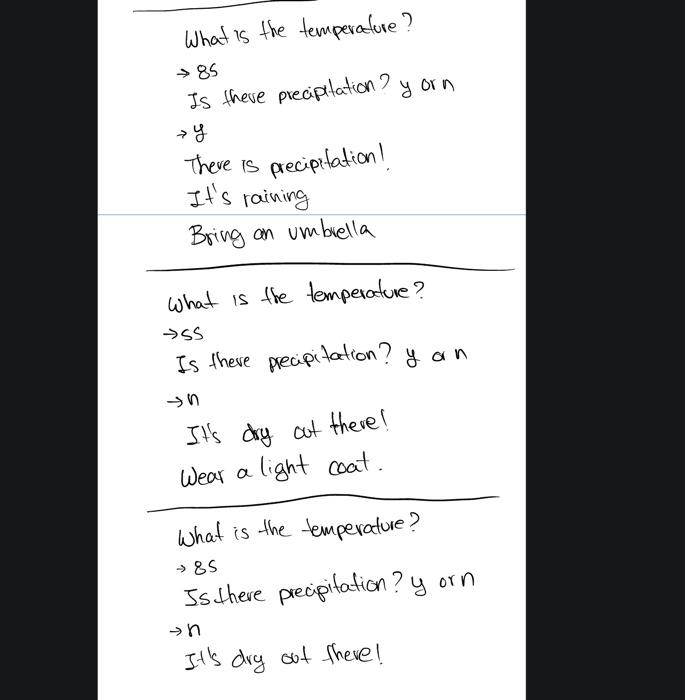 What is the temperature?
→ 85
Is there precipitation? y or n
→ y
There is precipitation!
It's raining
Bring an umbrella
What is the temperature?
→ 55
Is there precipitation? y or n
→ n
It's dry out there!
Wear a light coat.
What is the temperature?
→ 85
Is there precipitation? y or n
→ n
It's dry out there!